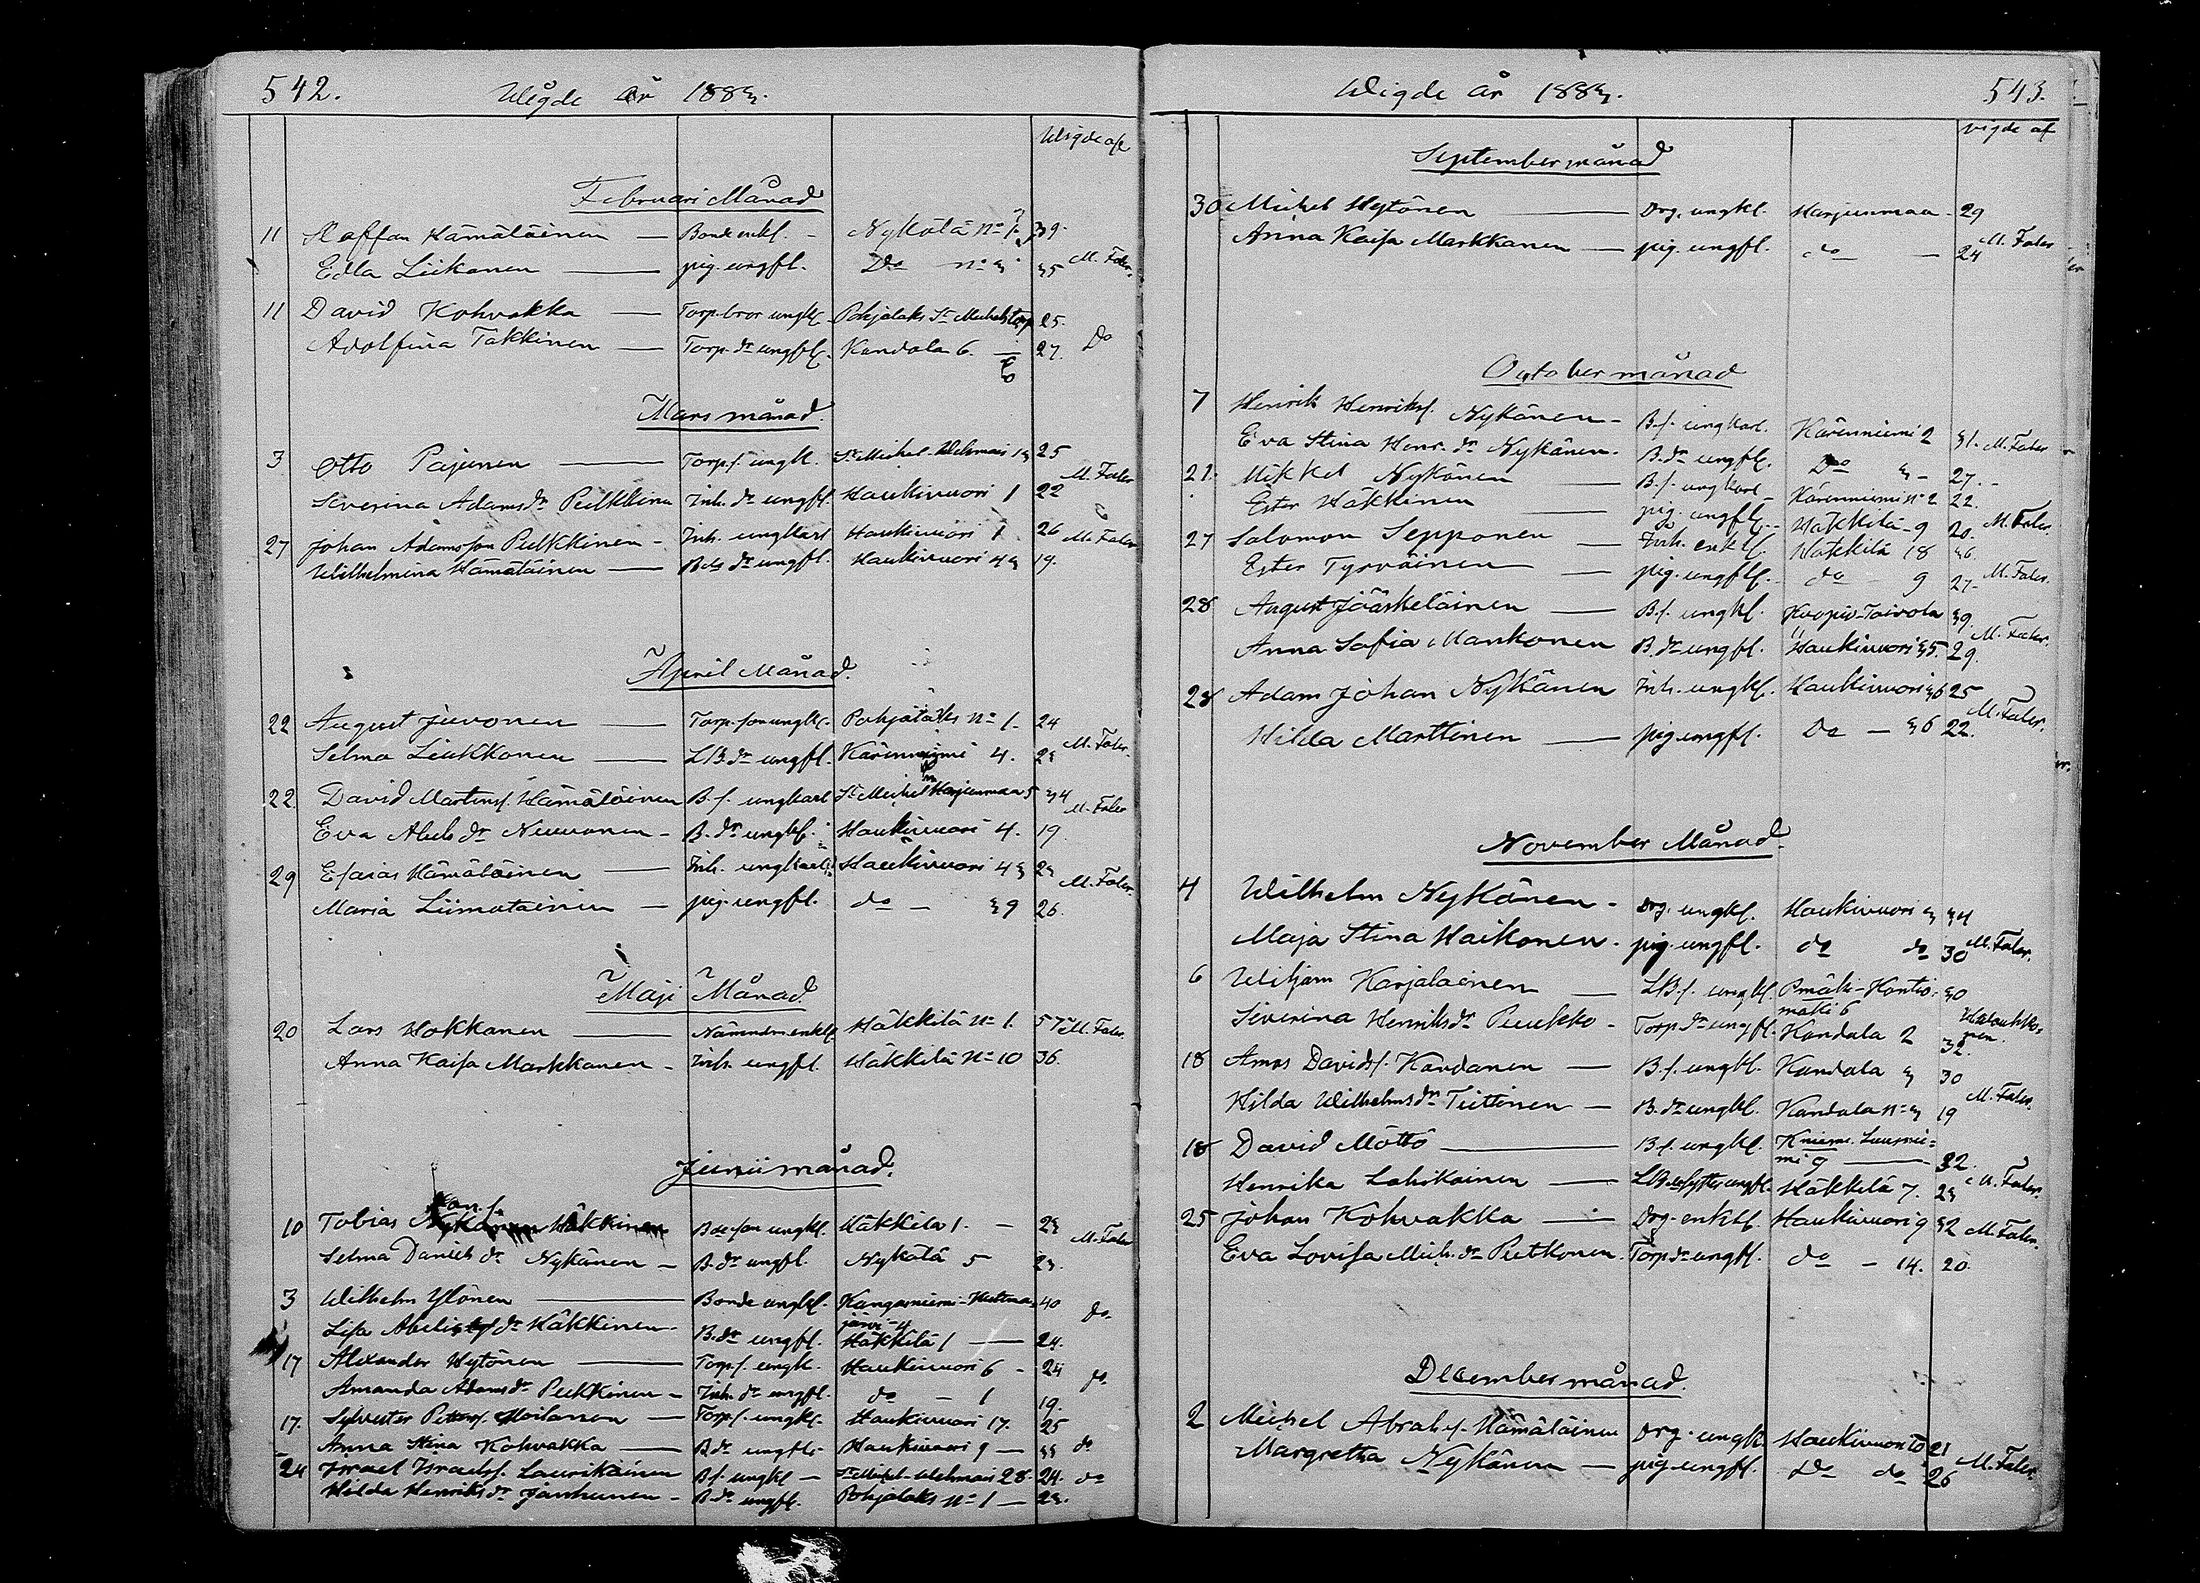 542.
Wigde år 1883.
Wigde af
Februari Månad
11 Staffan Hämäläinen — Bonde enkl. — Nykälä No 7. 39.
Edla Liikanen — pig. ungfl. Do No 3 35 M. Faler.
11 David Kohvakka — Torp. bror ungkl. Pohjalaks St Michels torp 25.
Adolfina Takkinen — Torp. dr ungfl. Kandala 6. — 27. Do
Mars månad.
3 Otto Pajunen — Torp. s. ungk. St Michel Wehmais 13 25
Severina Adams dr Pulkkinen Inh. dr ungfl. Haukivuori 1 22 M. Faler
27 Johan Adamsson Pulkkinen — Inh. ungkarl Haukivuori 1 26 M. Faler
Wilhelmina Hämäläinen — B dr ungfl. Haukivuori 43 19.
April Månad.
22 August Juvonen — Torp. son ungkl. Pohjalaks No 1. 24
Selma Liukkonen — LB. dr ungfl. Kärenniemi 4. 23 M. Faler.
22 David Martinss. Hämäläinen B. s. ungkarl St Michel Harjunmaa 5 34 M. Faler
Eva Abels dr Nuuvonen — B. dr ungfl. Haukivuori 4. 19.
29 Esaias Hämäläinen — Inh. ungkarl Haukivuori 43 23
Maria Liimatainen — pig. ungfl. do — 39 26. M. Faler.
Maji Månad
20 Lars Hokkanen — Nämndm. enkl. Häkkilä No 1. 57 M. Faler.
Anna Kaisa Markkanen — Inh. ungfl. Häkkilä No 10 36.
Junii månad.
10 Tobias Häkkinen B de son ungkl. Häkkilä 1. — 23
Selma Daniels dr Nykänen — B. dr ungfl. Nykälä 5 23. M. Faler
3 Wilhelm Ylönen — Bonde ungkl. Kangasniemi - 40 do
järvi - 4
Lisa Abels dr Häkkinen B. dr ungfl. Häkkilä 1 — 24.
17 Alexander Hytönen — Torp. s. ungk. Haukivuori 6 — 24 do
Amanda Adams dr Pulkkinen — Inh. dr ungfl. do — 1 19.
17. Sylvester Petterss. Moilanen — Torp. s. ungkl. Haukivuori 17. 25
Anna Stina Kohvakka — B dr ungfl. Haukivuori 9 — 33 do
24 Israel Israelss. Laurikainen B. s. ungkl — St Michel Wehmais 28. 24. do
Hilda Henriks dr Janhunen — B dr ungfl. Pohjalaks No 1 — 23.
Wigde år 1883.
543.
vigde af
September månad
30 Michel Hytönen — Drg. ungkl. Harjunmaa — 29
Anna Kaisa Markkanen — pig. ungfl. do — 24 M. Faler
October månad
7 Henrik Henrikss. Nykänen — B. s. ungkarl. Kärenniemi 2 31. M. Faler
Eva Stina Henr. dr Nykänen. B. dr ungfl. Do 3 — 27.
21. Mikkel Nykänen — B. s. ungkarl — Kärenniemi No 2 22.
Ester Häkkinen — pig. ungfl. Häkkilä — 9 20. M. Faler.
27 Salomon Sepponen — Inh. enkl. Häkkilä 18 36
Ester Tyrväinen — pig. ungfl. do 9 27. M. Faler.
28 August Jääskeläinen — B. s. ungkl. Kuopio - Toivola 39.
Anna Sofia Mankonen B. dr ungfl. Haukivuori 35. 29. M. Faler.
28 Adam Johan Nykänen Inh. ungkl. Haukivuori 36 25
Hilda Marttinen — pig ungfl. Do — 36 22. M. Faler.
November Månad.
4 Wilhelm Nykänen — Drg. ungkl. Haukivuori 3 34
Maja Stina Haikonen. pig. ungfl. do do 30 M. Faler.
6 Wiljam Karjalainen — LB. s. ungkl. Pmäki - Kontio- 30
mäki 6
Siverina Henriks dr Puukko — Torp dr ungfl. Kandala 2 32.
18 Amos Davids s. Kandanen — B. s. ungkl. Kandala 3 30
Hilda Wilhelms dr Tiittinen — B. dr ungfl. Kandala No 3 19 M. Faler.
18 David Möttö — B s. ungkl. Kniemi. Luusnie=
mi 9 — 32.
Henrika Lahikainen — ungfl. Häkkilä 7. 23 M. Faler.
25 Johan Kohvakka — Drg. enkl. Haukivuori 9 32 M. Faler.
Eva Lovisa Mich. dr Putkonen. Torp dr ungfl. do — 14. 20.
December månad.
2 Michel Abrah. s. Hämäläinen Drg. ungk. Haukivuori 10 21
Margretha Nykänen — pig. ungfl. Do do 26 M. Faler.